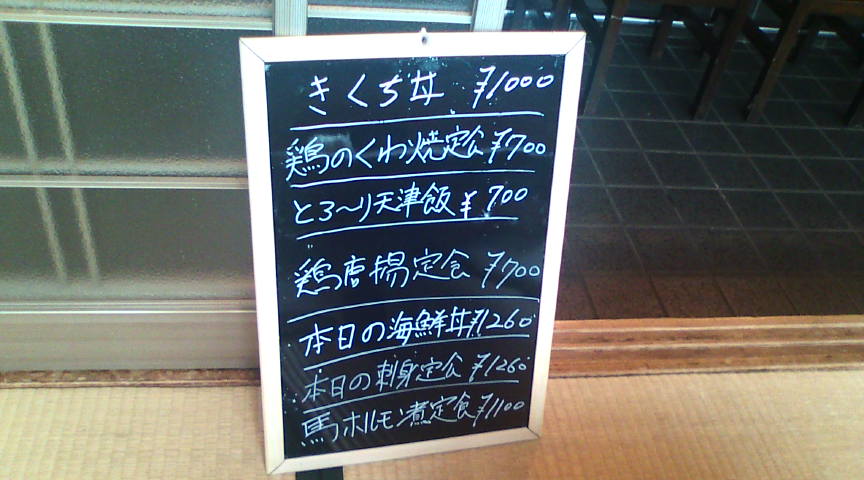 きくち丼 ¥1000
鶏のくわ焼定食 ¥700
とろ〜り天津飯 ¥700
鶏唐揚定食 ¥700
本日の海鮮丼 ¥1260
本日の刺身定食 ¥1260
馬ホルモン煮定食 ¥1100